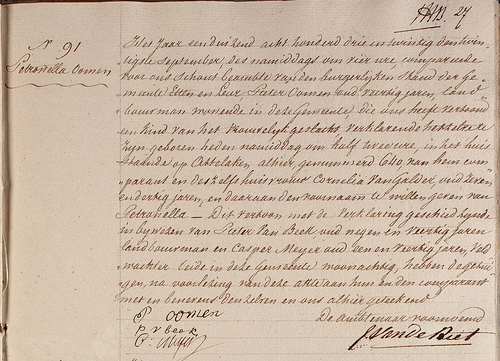 N° 91
Petronella Oomen
Het Jaar een duizend acht honderd drie en twintig den twin-
tigste September, des namiddags om vier ure, compareerde
voor ons Schout Beambte van den burgerlyken Stand der Ge-
meente Etten en Leur, Pieter Oomen oud veertig jaren, land
bouwman woonende in deze Gemeente, die ons heeft vertoond
een Kind van het vrouwelyk geslacht, verklarende hetzelve te
zyn geboren heden namiddag om half twee ure, in het huis
staande op Attelaken, alhier, genummerd 640, van hem com-
parant en deszelfs huisvrouw Cornelia Van Gilder, oud zeven
en dertig jaren, en daaraan den voornaam te willen geven van
Petronella — Dit vertoon met de verklaring geschied zynde
in bywezen van Pieter Van Beek oud negen en veertig jaren
landbouwman en Casper Meyer oud een en veertig jaren, veld
wachter beide in deze Gemeente woonachtig, hebben de getui-
gen, na voorlezing van deze akte aan hun en den comparant
met en benevens denzelven en ons alhier geteekend
P oomen
De Ambtenaar voornoemd
P v beek
C: Meyer